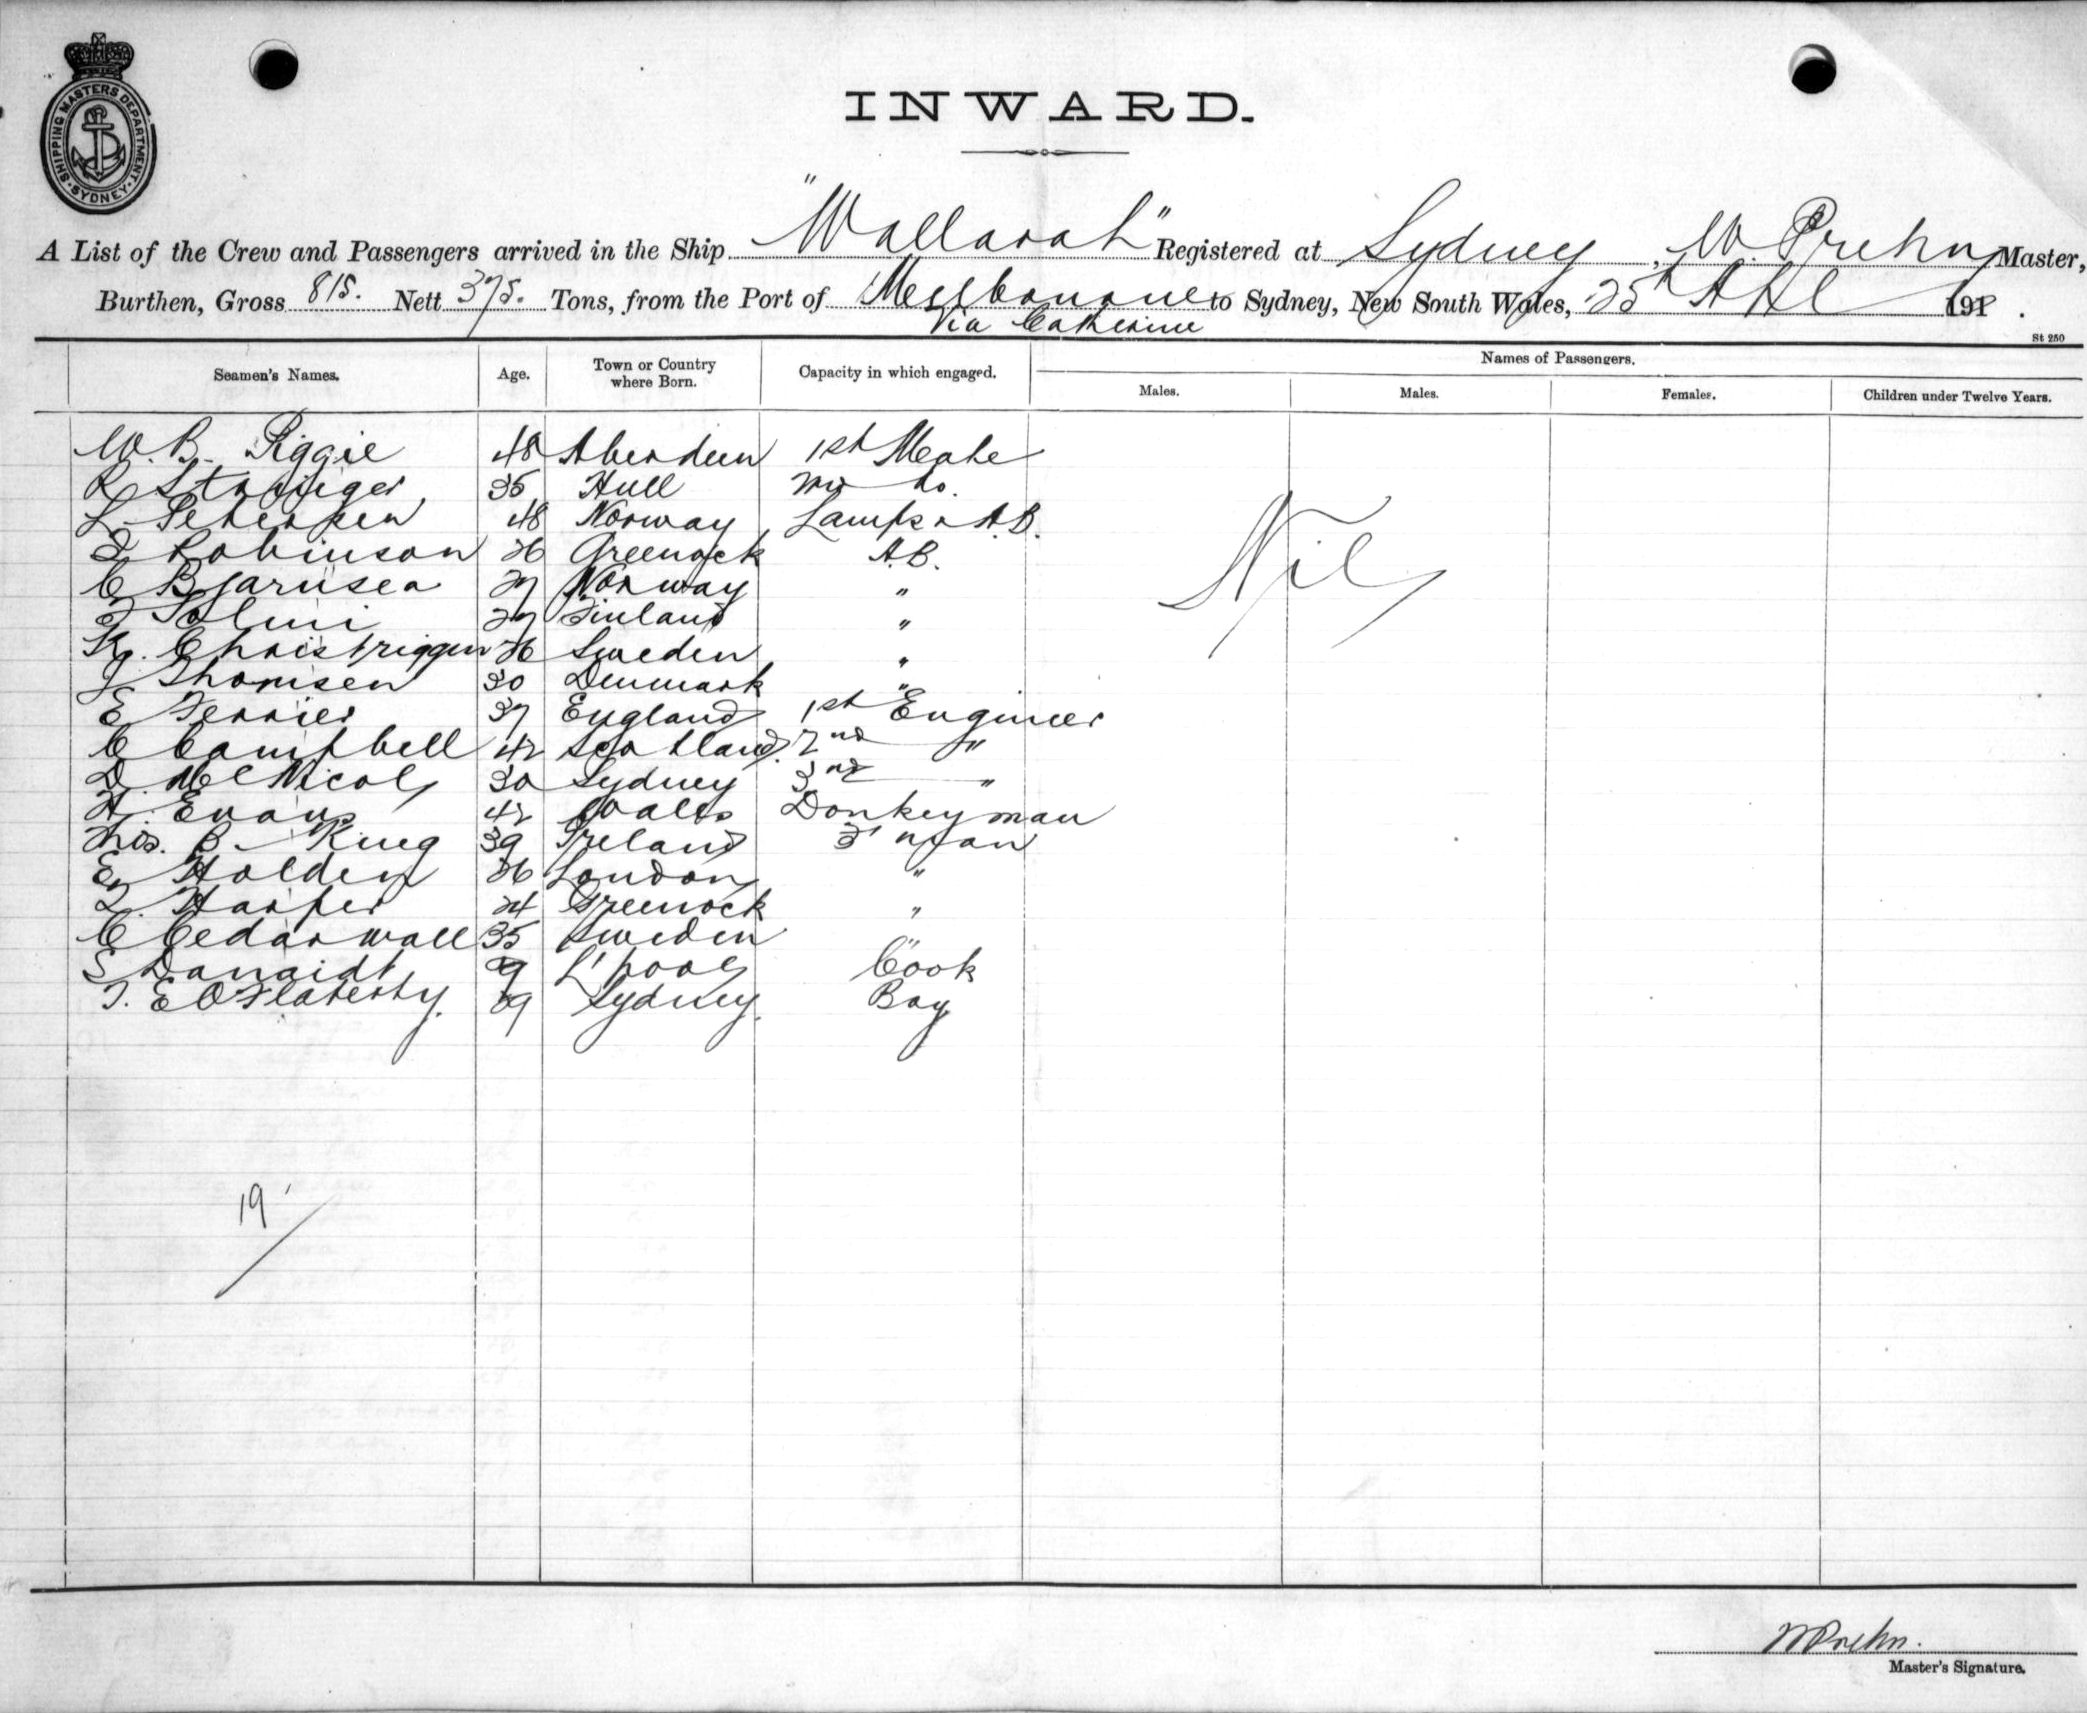 SHIPPING MASTERS DEPARTMENT. SYDNEY
INWARD.
A List of the Crew and Passengers arrived in the Ship "Wallarah" Registered at Sydney, W. Prehn Master,
Burthen, Gross 815. Nett 375. Tons, from the Port of Melbourne to Sydney, New South Wales, 25th 191 .
Via Catherine
St 250
Seamen's Names. Age. Town or Country where Born. Capacity in which engaged. Names of Passengers.
Males. Males. Females. Children under Twelve Years.
W. B. Piggie 48 Aberdeen 1st Mate
R 35 Hull do.
L Petersen 48 Norway Lamps & A.B.
Robinson 26 Greenock A.B.
C Bjarnsea 27 Norway "
Salmi 27 Finland "
K. 26 Sweden "
J Thomsen 30 Denmark "
E Ferrier 37 England 1st Engineer
C Campbell 42 Scotland. 2nd "
D. McNicol 30 Sydney 3rd "
H. Evans 42 Wales Donkeyman
Thos. B King 39 Ireland F'man
E Holden 26 London "
Harper 24 Greenock "
C Cedarwall 35 Sweden "
S L'pool Cook
T. E O'Flaherty. 19 Sydney. Boy
Nil
19
W Prehn.
Master's Signature.